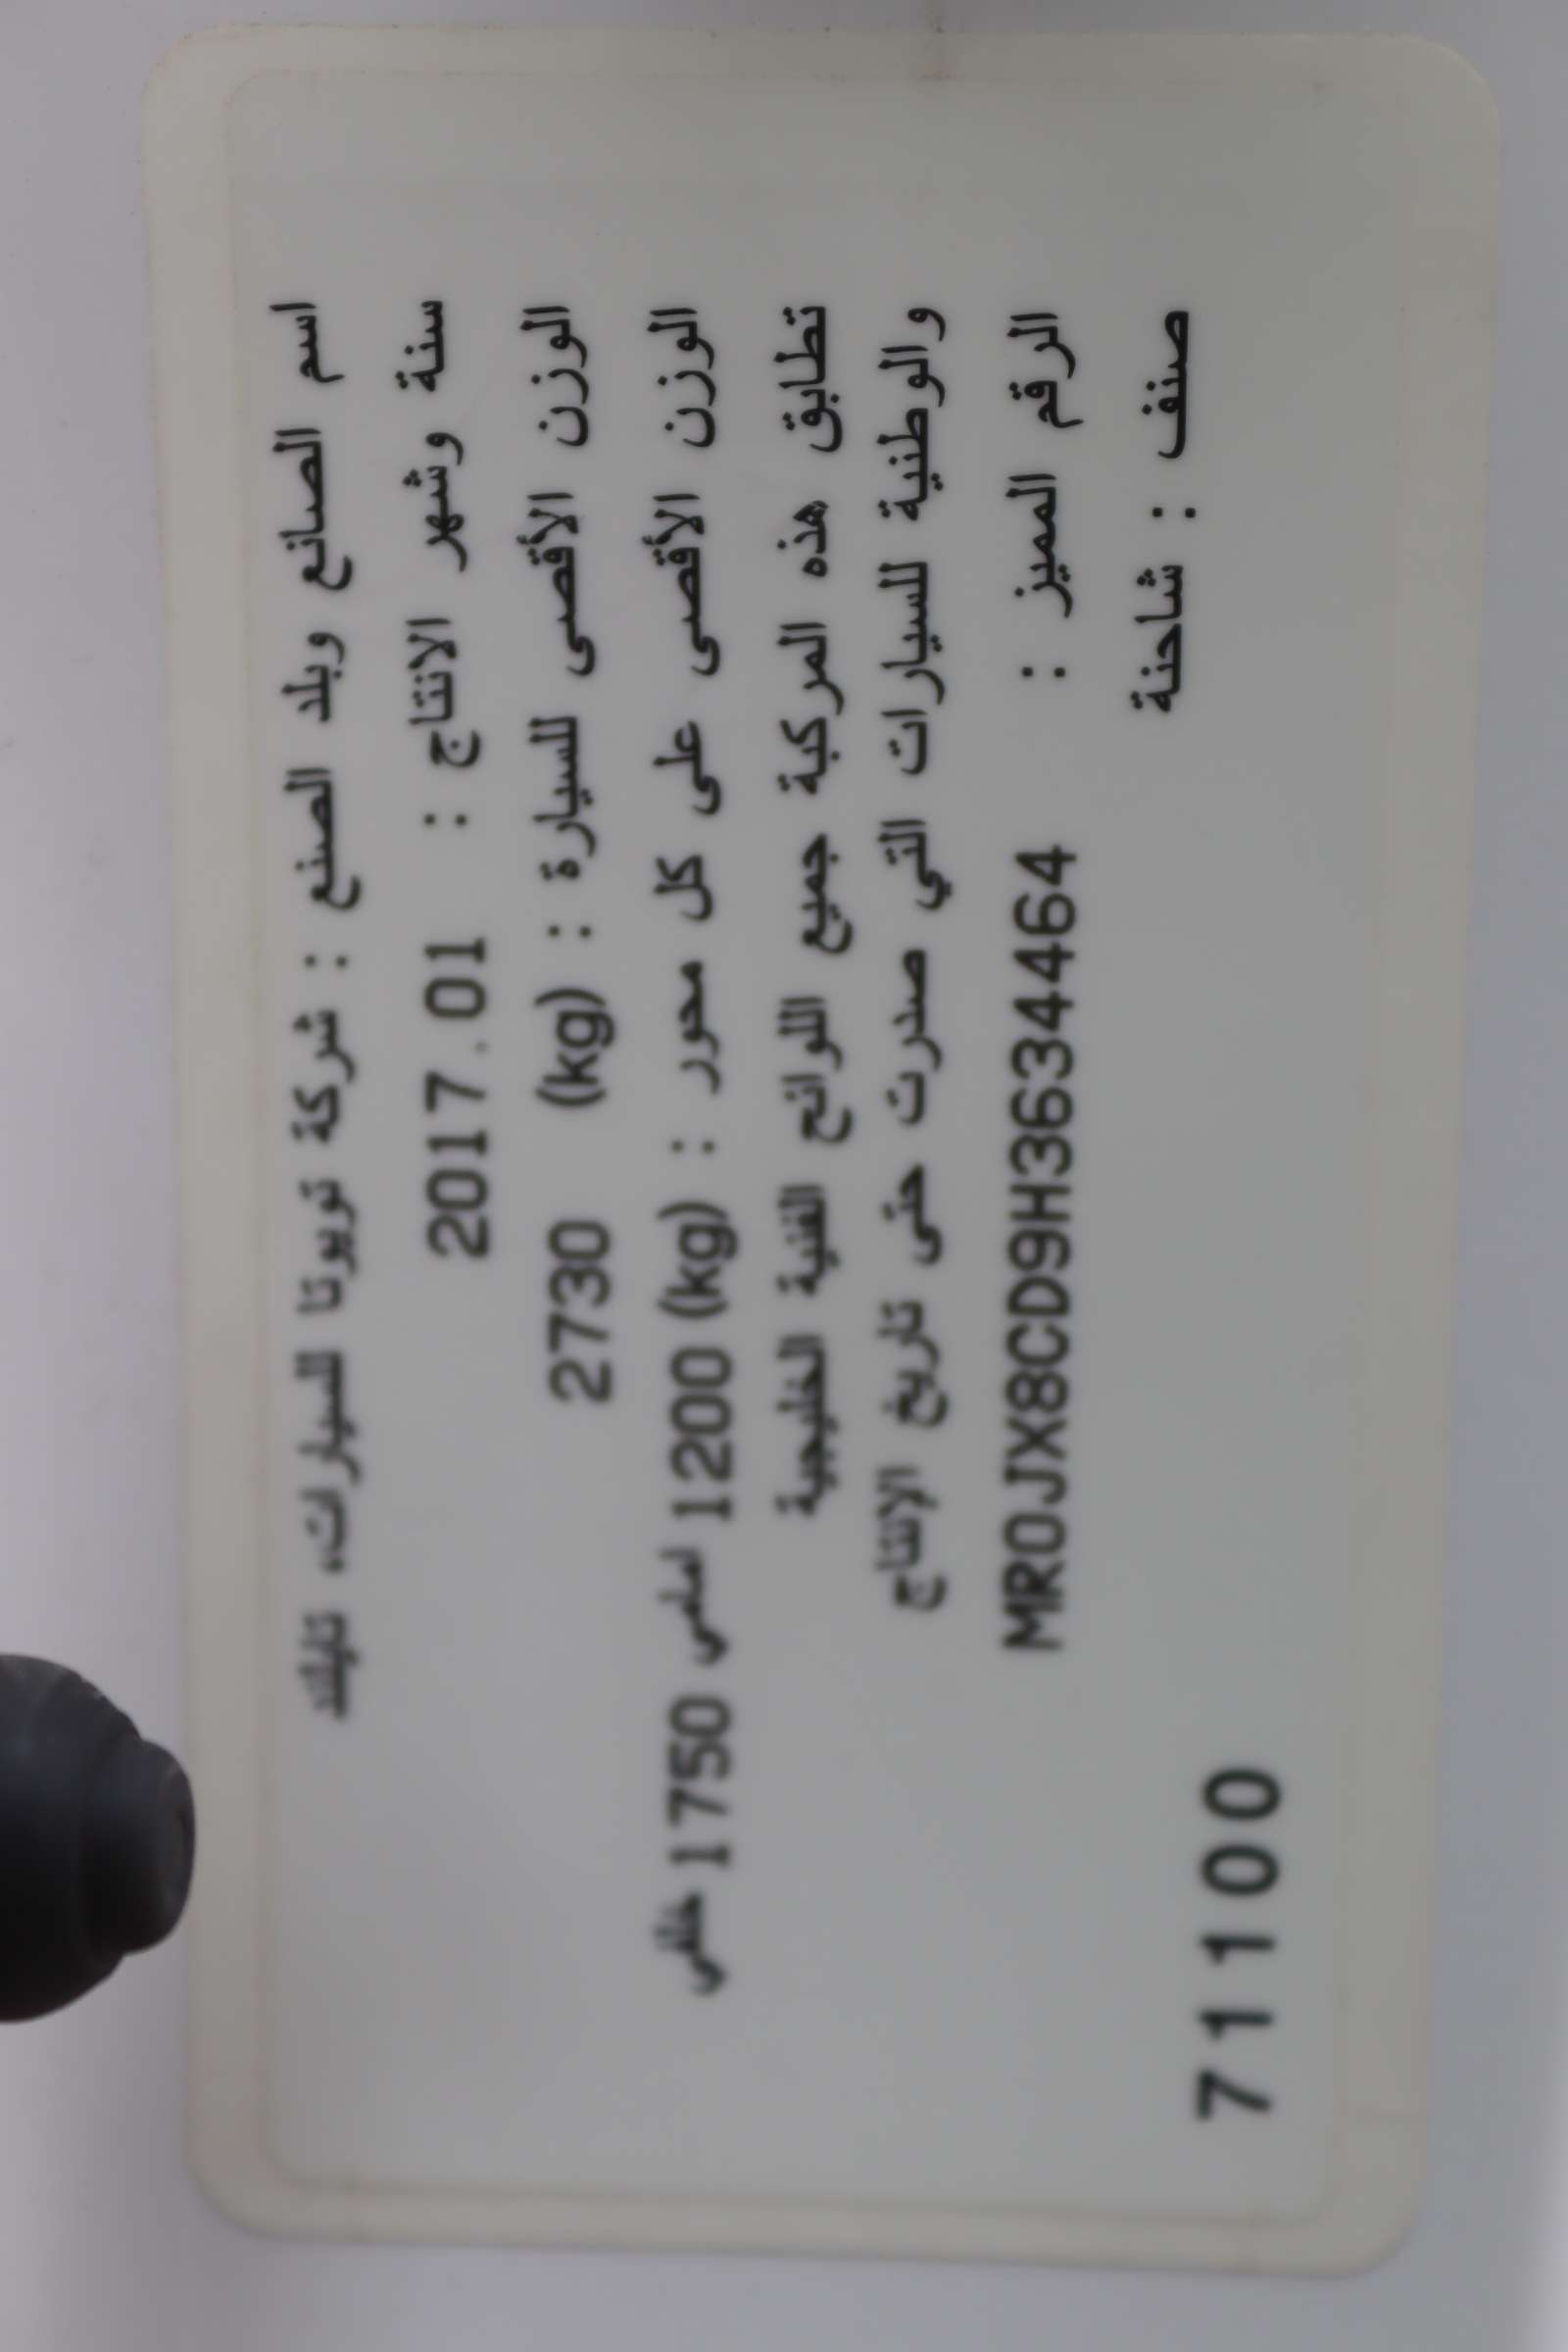 اسم الصانع وبلد الصنع : شركة تويوتا للسيارات، تايلند
سنة وشهر الانتاج : 2017.01
الوزن الأقصى للسيارة : (kg) 2730
الوزن الأقصى على كل محور : (kg) 1200 امامى 1750 خلفى
تطابق هذه المركبة جميع اللوائح الفنية الخليجية
والوطنية للسيارات التي صدرت حتى تاريخ الإنتاج
الرقم المميز : MR0JX8CD9H3634464
صنف : شاحنة
71100